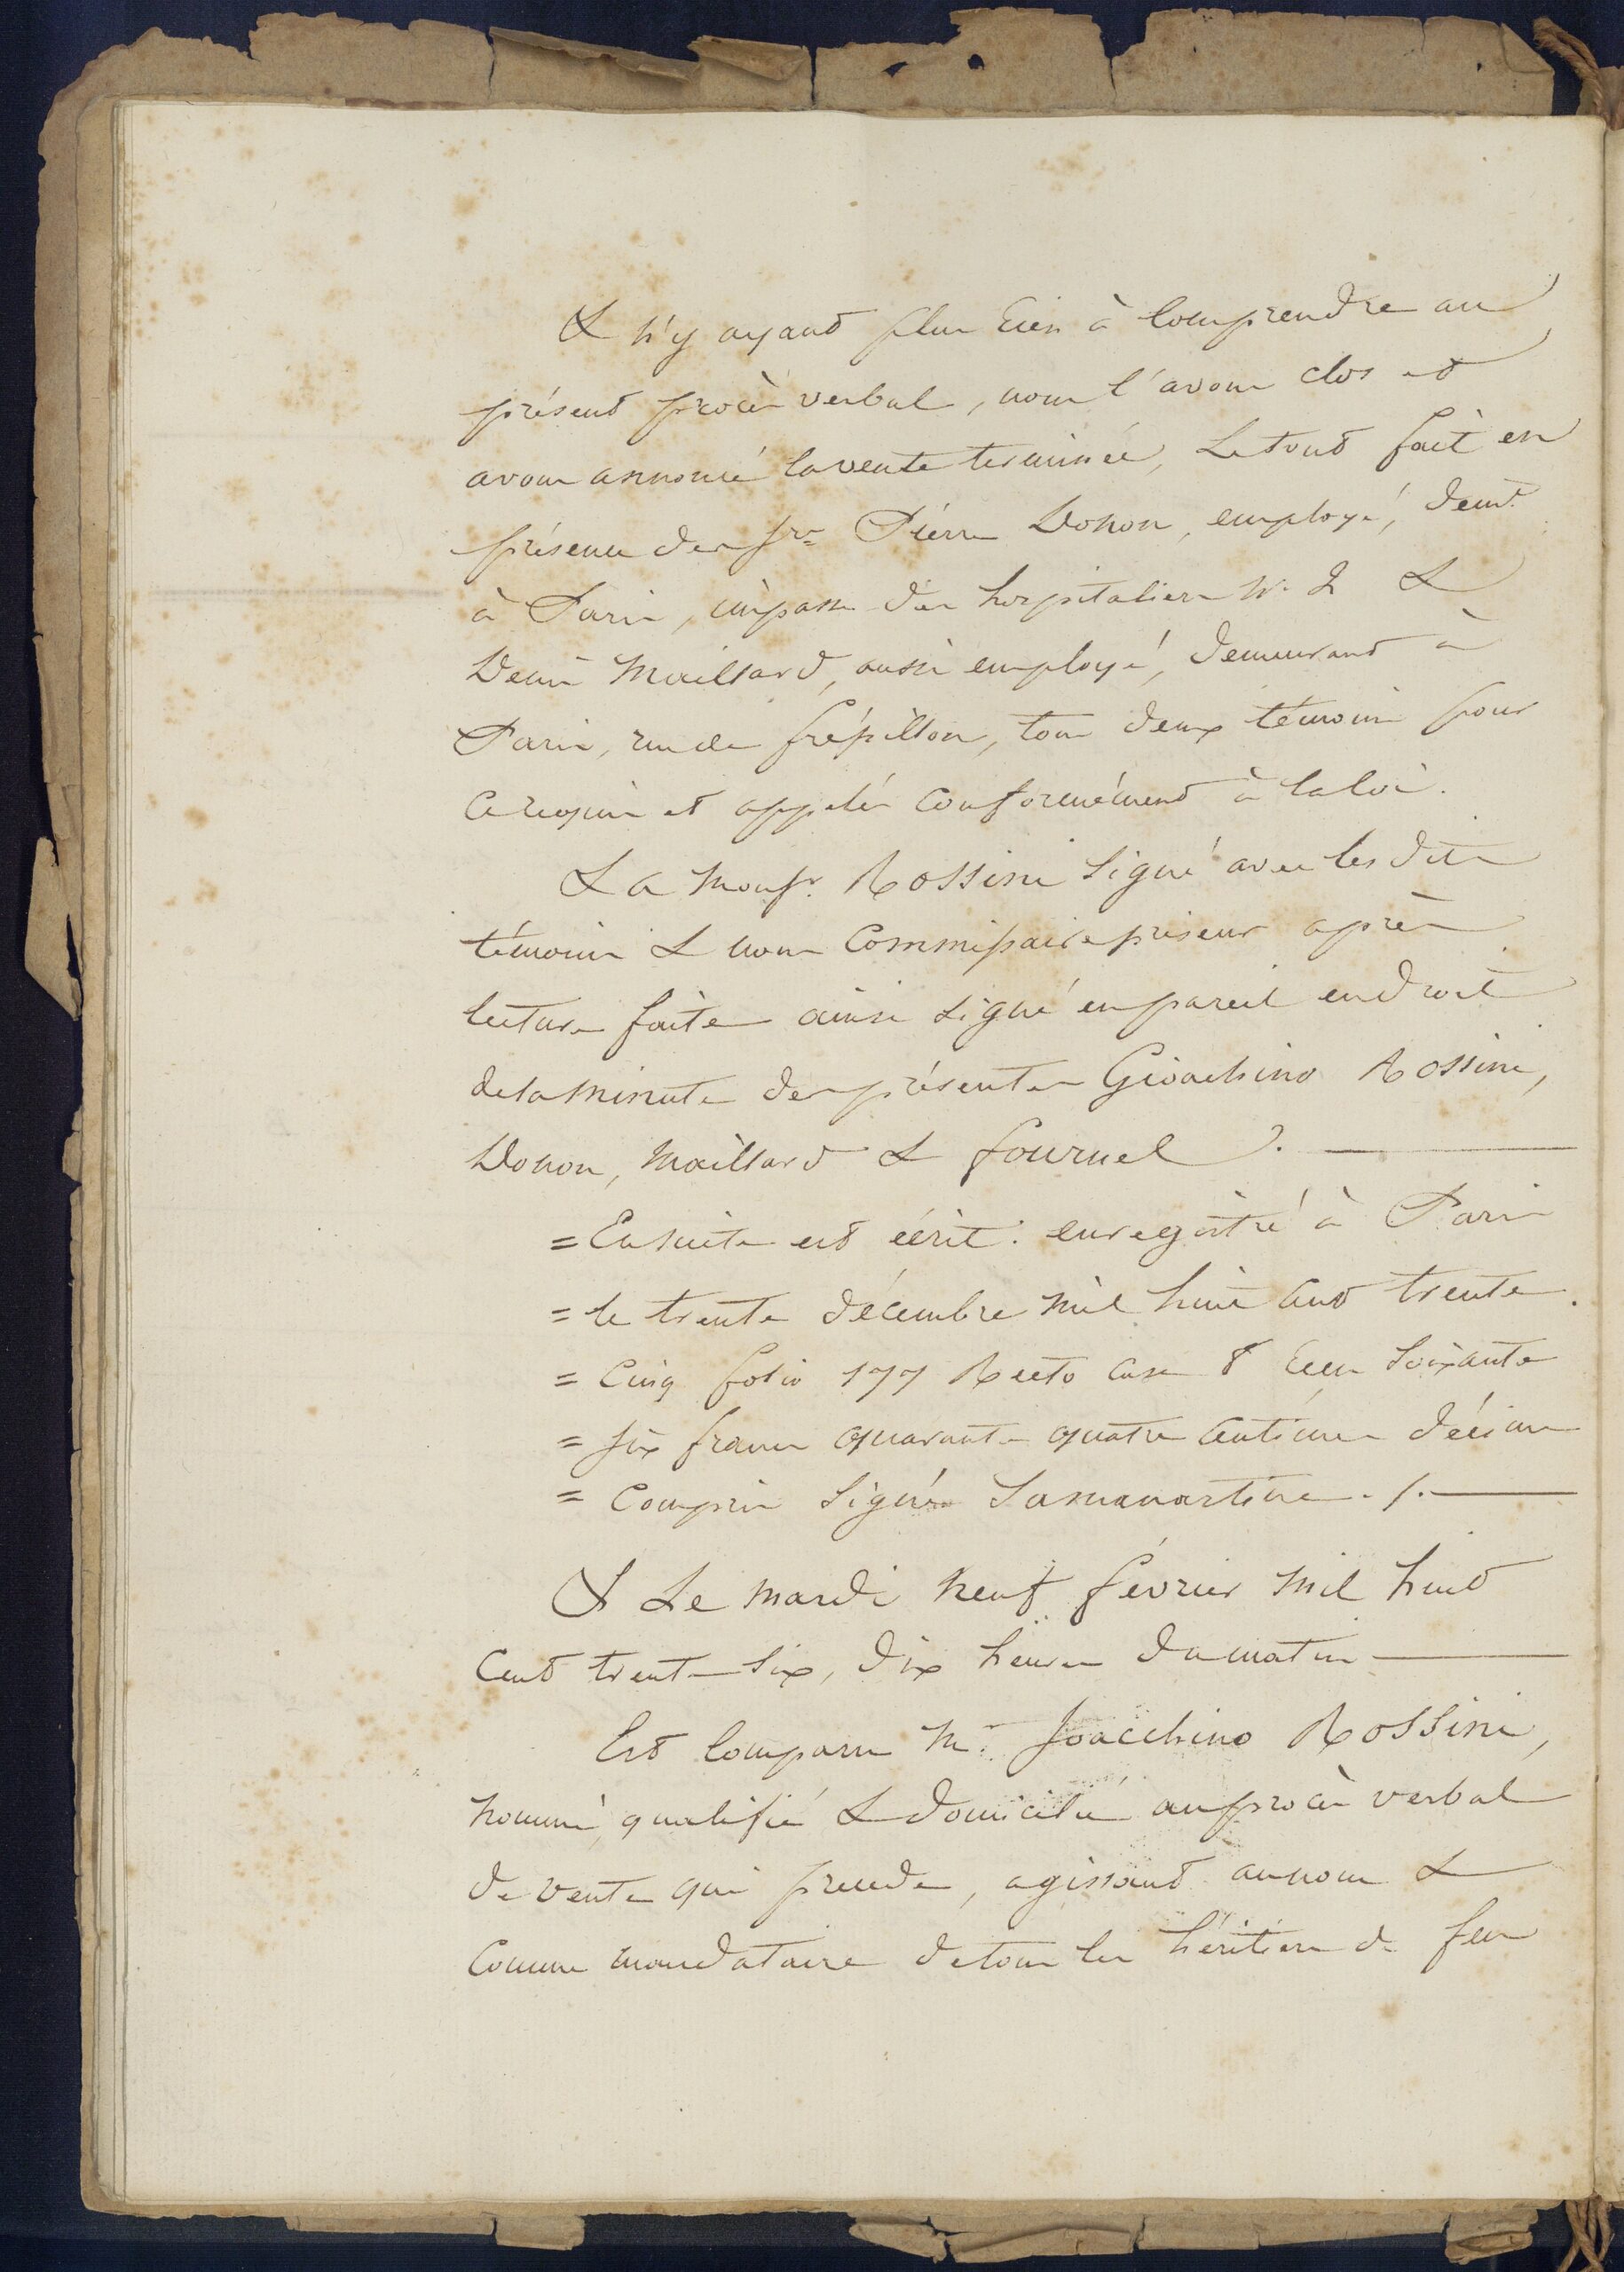 & n'y ayant plus rien à Comprendre au
présent procès verbal, nous l'avons clos et
avons annoncé la vente terminée, Le tout fait en
présence des Srs Pierre Donon, employé, demt
à Paris, impasse des hospitaliers No 2 &
Denis Maillard, aussi employé, demeurant à
Paris, rue de frépillon, tous deux témoins pour
ce requis et appelés Conformément à la loi.
& a Monsr Rossini Signé avec les dits
témoins & nous Commissaire priseur après
lecture faite ainsi signé en pareil endroit
de la Minute des présentes Gioachino Rossini,
Donon, Maillard & fournel ./.
= Ensuite est écrit: enregistré à Paris
= le trente décembre mil huit cent trente
= Cinq folio 177 Recto case 8 reçu Soixante
= six francs quarante quatre centimes décime
= Compris Signé ./.
& Le mardi neuf février mil huit
Cent trente Six, dix heures du matin
Est Comparu Mr Joacchino Rossini,
nommé, qualifié & domicilié au procès verbal
de vente qui précède, agissant au nom &
Comme mandataire de tous les héritiers de feu